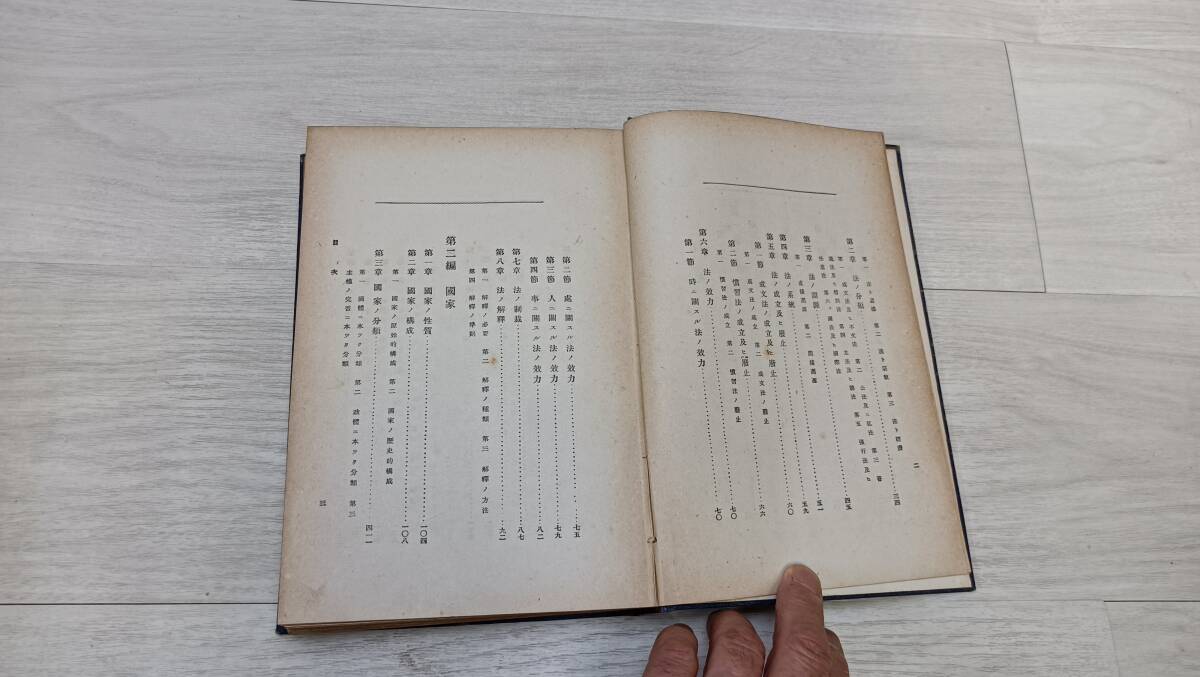 二
第一 法ト道德 第二 法ト宗敎 第三 法ト經濟
第二章 法ノ分類……三四
第一 成文法及ヒ不文法 第二 公法及ニ私法 第三 普
通法及ヒ特別法 第四 主法及ヒ助法 第五 強行法及ヒ
任意法 第六 國法及ヒ國際法
第三章 法ノ淵源……四五
直接淵源 第二 間接淵源
第四章 法ノ系統……五一
第五章 法ノ成立及ヒ廢止……五九
第一節 成文法ノ成立及ヒ廢止……六〇
第一 成文法ノ成立 第二 成文法ノ廢止
第二節 慣習法ノ成立及ヒ廢止……六六
第一 慣習法ノ成立 第二 慣習法ノ廢止
第六章 法ノ效力……七〇
第一節 時ニ關スル法ノ效力……七〇
第二節 處ニ關スル法ノ效力……七五
第三節 人ニ關スル法ノ效力……七九
第四節 事ニ關スル法ノ效力……八二
第七章 法ノ制裁……八七
第八章 法ノ解釋……九二
第一 解釋ノ必要 第二 解釋ノ種類 第三 解釋ノ方法
第四 解釋ノ準則
第二編 國家
第一章 國家ノ性質……一〇四
第二章 國家ノ構成……一〇八
第一 國家ノ原始的構成 第二 國家ノ歷史的構成
第三章 國家ノ分類……四一一
第一 國體ニ本ツク分類 第二 政體ニ本ツク分類 第三
主權ノ完否ニ本ツク分類
目次
三